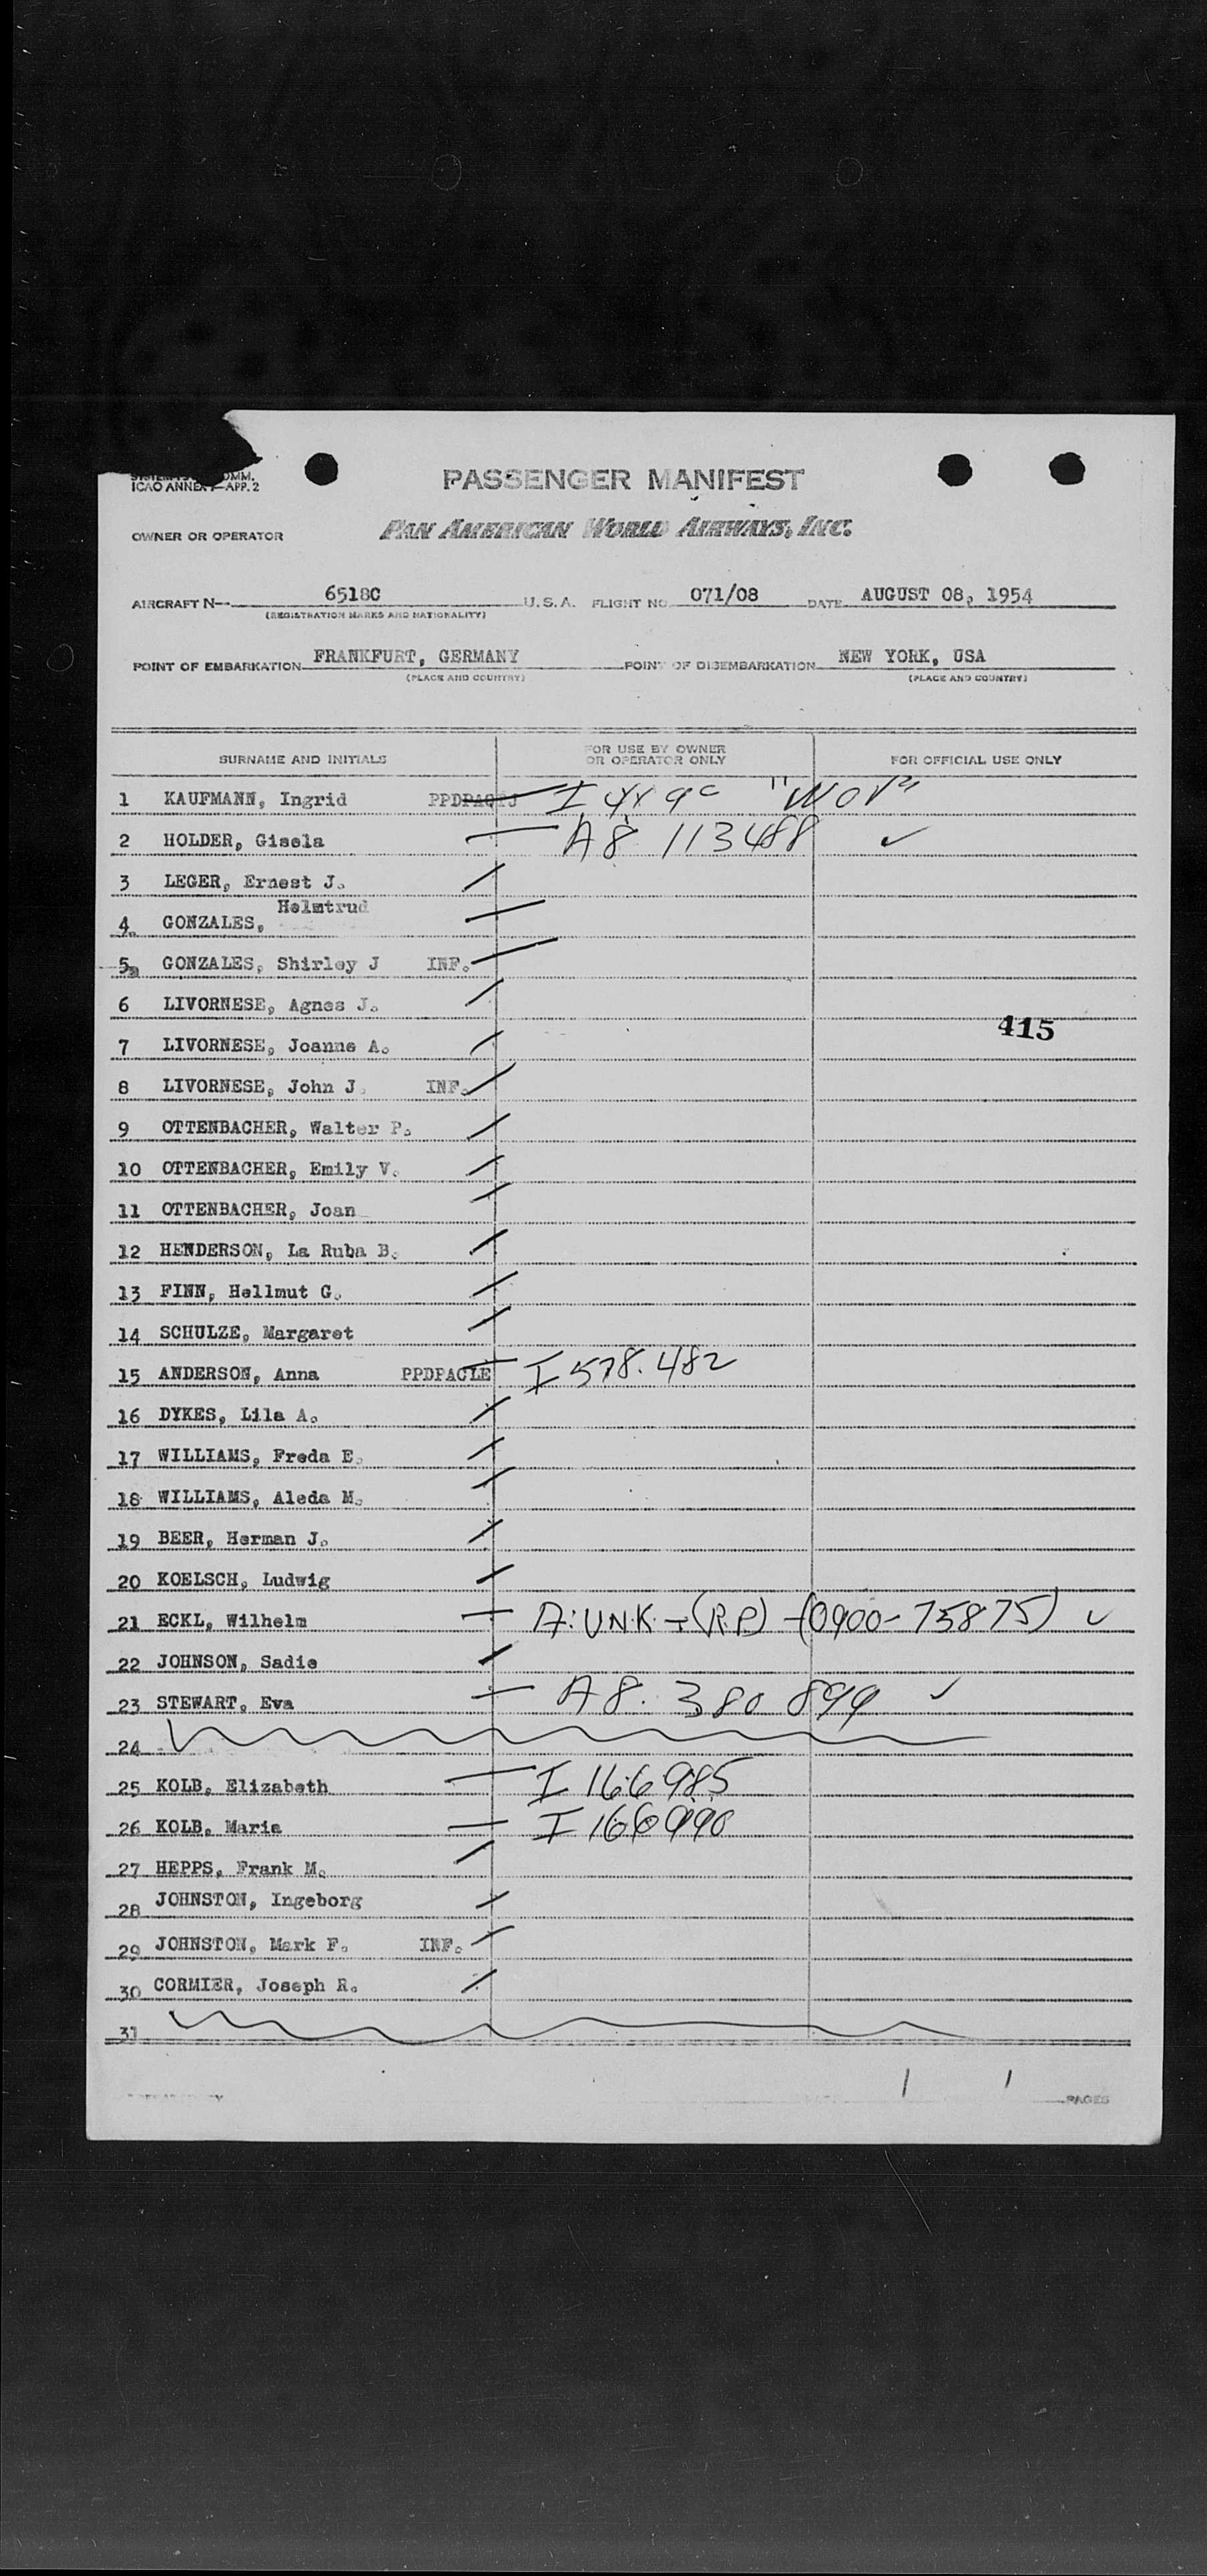 ICAO ANNEX 9—APP. 2
PASSENGER MANIFEST
OWNER OR OPERATOR PAN AMERICAN WORLD AIRWAYS, INC.
AIRCRAFT N— 6518C U.S.A. FLIGHT NO. 071/08 DATE AUGUST 08, 1954
(REGISTRATION MARKS AND NATIONALITY)
POINT OF EMBARKATION FRANKFURT, GERMANY POINT OF DISEMBARKATION NEW YORK, USA
(PLACE AND COUNTRY) (PLACE AND COUNTRY)
SURNAME AND INITIALS FOR USE BY OWNER OR OPERATOR ONLY FOR OFFICIAL USE ONLY
1 KAUFMANN, Ingrid
2 HOLDER, Gisela A8 113488 ✓
3 LEGER, Ernest J.
4. GONZALES, Helmtrud
5. GONZALES, Shirley J INF.
6 LIVORNESE, Agnes J.
415
7 LIVORNESE, Joanne A.
8 LIVORNESE, John J. INF.
9 OTTENBACHER, Walter P.
10 OTTENBACHER, Emily V.
11 OTTENBACHER, Joan
12 HENDERSON, La Ruba B.
13 FINN, Hellmut G.
14 SCHULZE, Margaret
15 ANDERSON, Anna PPDPACLE I 578.482
16 DYKES, Lila A.
17 WILLIAMS, Freda E.
18 WILLIAMS, Aleda M.
19 BEER, Herman J.
20 KOELSCH, Ludwig
21 ECKL, Wilhelm A:UNK - (R.P.) - (0900-75875) ✓
22 JOHNSON, Sadie
23 STEWART, Eva A8. 380 899 ✓
24
25 KOLB, Elizabeth I 166985
26 KOLB, Maria I 166990
27 HEPPS, Frank M.
28 JOHNSTON, Ingeborg
29 JOHNSTON, Mark F. INF.
30 CORMIER, Joseph R.
31
1 1 PAGES